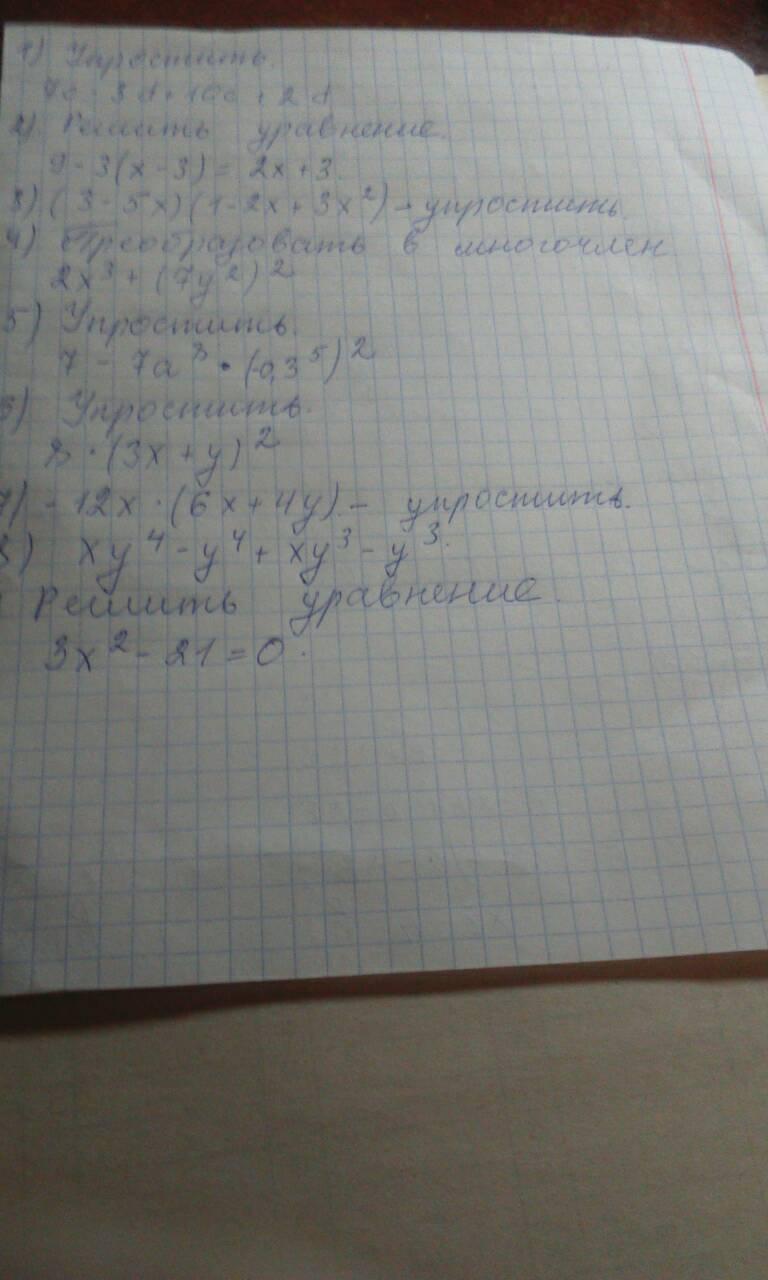 1) Упростить.
2) Решить уравнение.
9 - 3(x - 3) = 2x + 3.
3) (3 - 5x)(1 - 2x + 3x²) - упростить.
4) Преобразовать в многочлен
2x³ + (7y²)²
5) Упростить.
7 - 7a³ · (-0,3⁵)²
6) Упростить.
· (3x + y)²
7) - 12x · (6x + 4y) - упростить.
8) xy⁴ - y⁴ + xy³ - y³.
Решить уравнение.
3x² - 21 = 0.